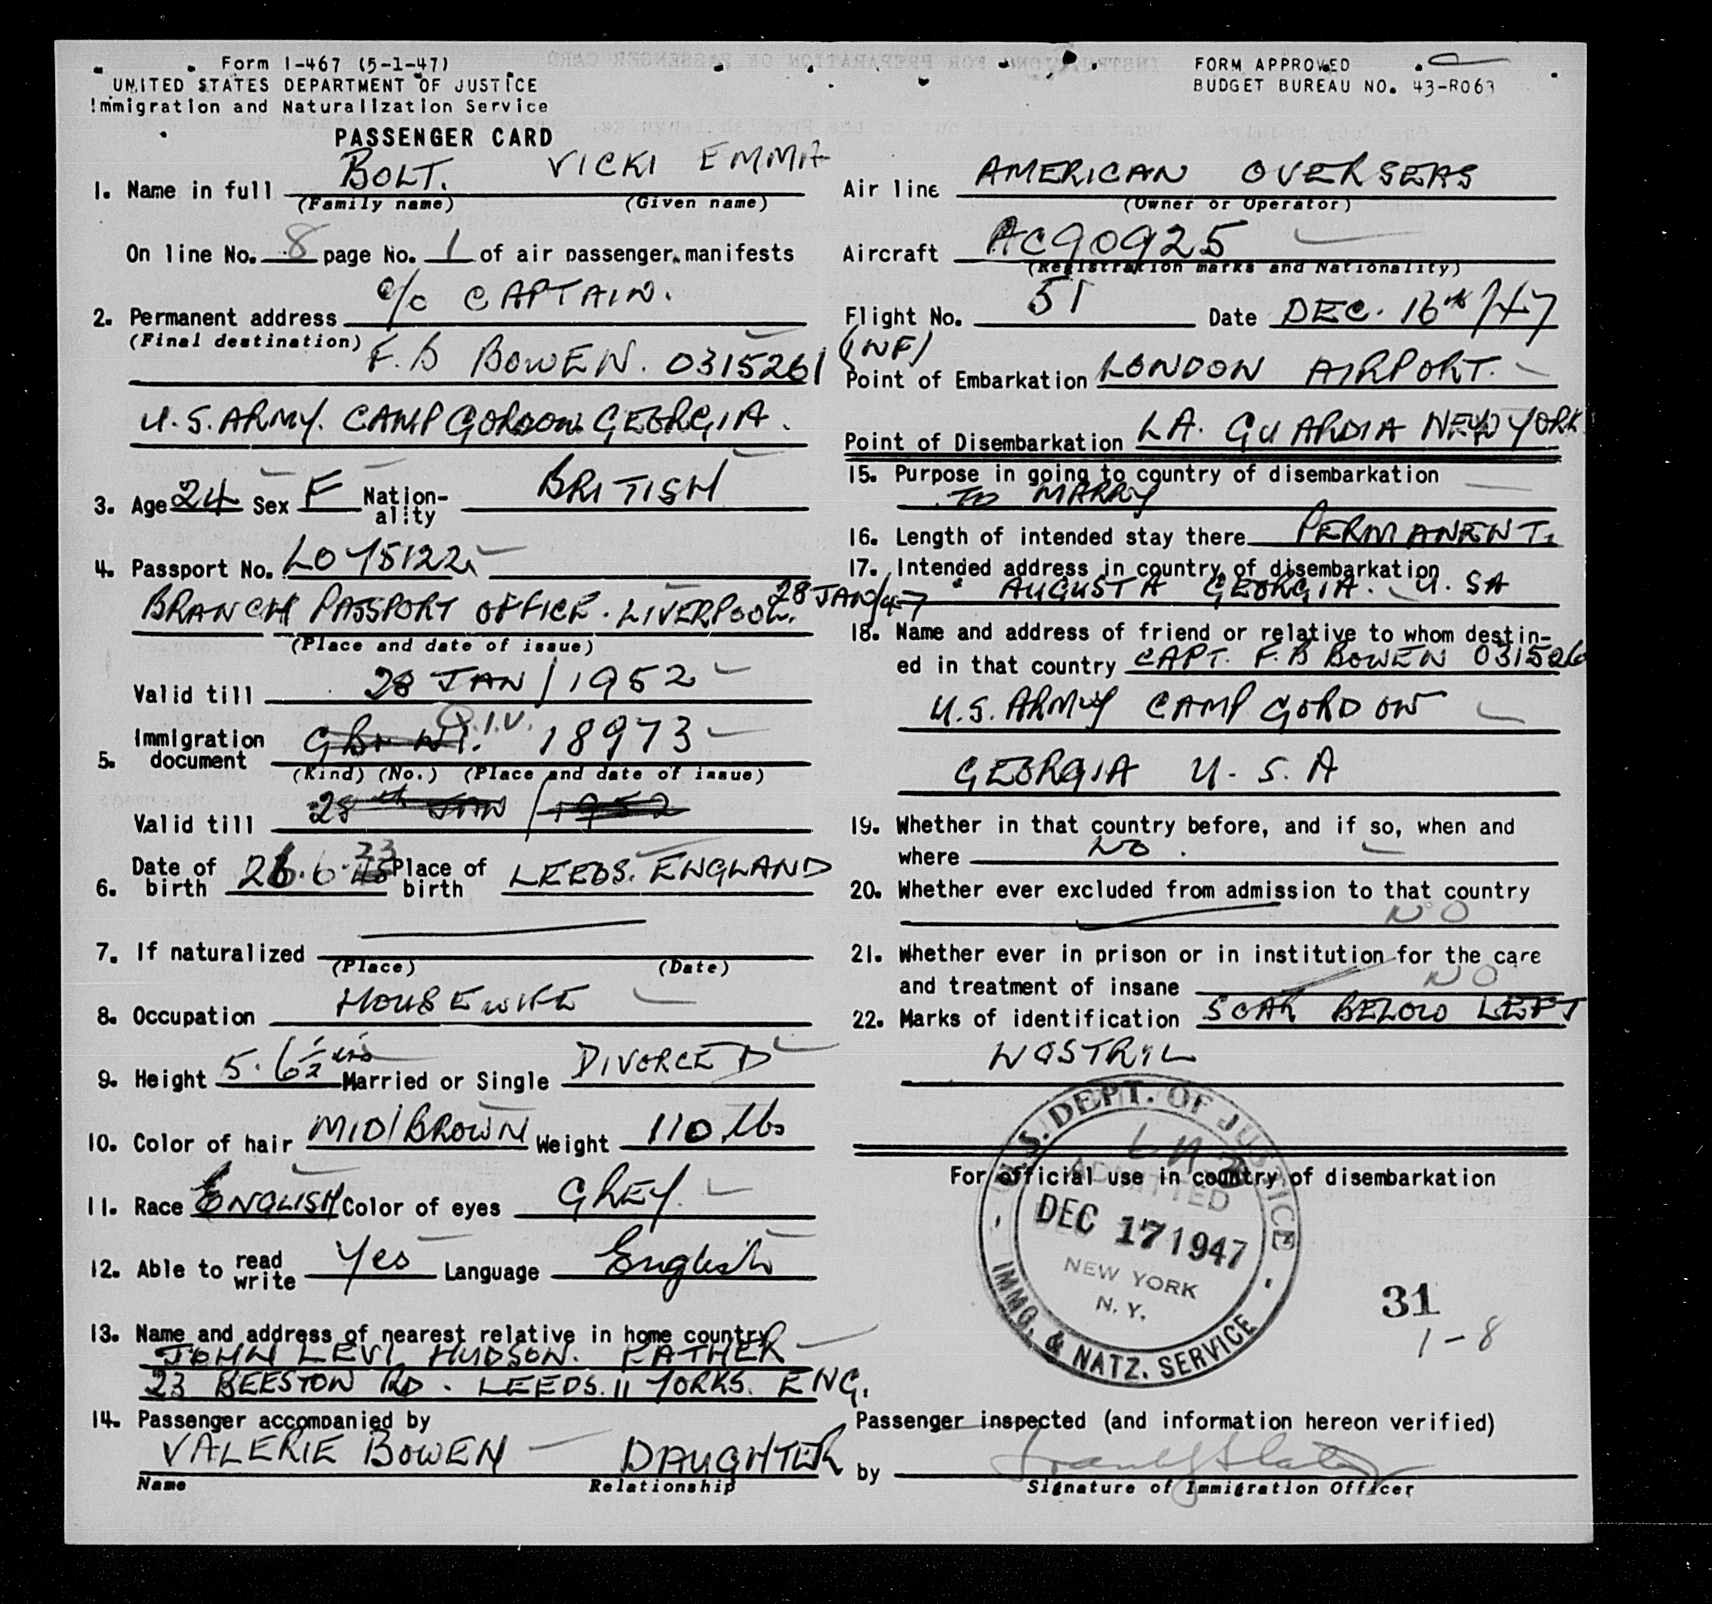 Form I-467 (5-1-47)
UNITED STATES DEPARTMENT OF JUSTICE
Immigration and Naturalization Service
PASSENGER CARD
1. Name in full BOLT. VICKI EMMA
(Family name) (Given name)
On line No. 8 page No. 1 of air passenger manifests
2. Permanent address c/o CAPTAIN.
(Final destination) F.B BOWEN. 0315261
U.S. ARMY. CAMP GORDON. GEORGIA.
3. Age 24 Sex F Nation-ality BRITISH
4. Passport No. LO 75122
BRANCH PASSPORT OFFICE. LIVERPOOL. 28 JAN/47
(Place and date of issue)
Valid till 28 JAN/1952
5. Immigration document Q.I.V. 18973
(Kind) (No.) (Place and date of issue)
Valid till 28th JAN/1952
6. Date of birth 26.6.23 Place of birth LEEDS. ENGLAND
7. If naturalized
(Place) (Date)
8. Occupation HOUSEWIFE
9. Height 5.6½ ins Married or Single DIVORCED
10. Color of hair MID/BROWN Weight 110 lbs
11. Race ENGLISH Color of eyes GREY.
12. Able to read write Yes Language English
13. Name and address of nearest relative in home country
JOHN LEVI HUDSON. FATHER
23 BEESTON RD. LEEDS. 11 YORKS. ENG.
14. Passenger accompanied by
VALERIE BOWEN DAUGHTER
Name Relationship
FORM APPROVED
BUDGET BUREAU NO. 43-R063
Air line AMERICAN OVERSEAS
(Owner or Operator)
Aircraft AC90925
(Registration marks and Nationality)
Flight No. 51 Date DEC. 16th/47
(INF)
Point of Embarkation LONDON AIRPORT.
Point of Disembarkation LA. GUARDIA NEW YORK
15. Purpose in going to country of disembarkation
TO MARRY
16. Length of intended stay there PERMANENT.
17. Intended address in country of disembarkation
AUGUSTA GEORGIA. U.SA
18. Name and address of friend or relative to whom destin-
ed in that country CAPT. F.B BOWEN 031526
U.S. ARMY CAMP GORDON
GEORGIA U.S.A
19. Whether in that country before, and if so, when and
where NO.
20. Whether ever excluded from admission to that country
NO
21. Whether ever in prison or in institution for the care
and treatment of insane NO
22. Marks of identification SCAR BELOW LEFT
NOSTRIL
For official use in country of disembarkation
U.S. DEPT. OF JUSTICE
ADMITTED
DEC 17 1947
NEW YORK
N.Y.
IMMG. & NATZ. SERVICE
31
1-8
Passenger inspected (and information hereon verified)
by
Signature of Immigration Officer